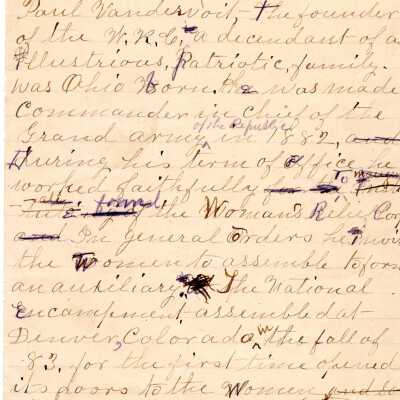 Paul Vandervoit, The founder
of the W.R.C. a decendant of a
Illustrious, Patriotic, family.
was Ohio born, he was made
Commander in chief of the
of the Republic
Grand army in 1882, and
During his term of office he
worked faithfully To
found the Woman's Relief Cor
and In general orders he
the Women to assemble to form
an auxiliary. The National
Encampment assembled at
Denver, Colorado in the fall of
83. for the first time opened
its doors to the Women, and so